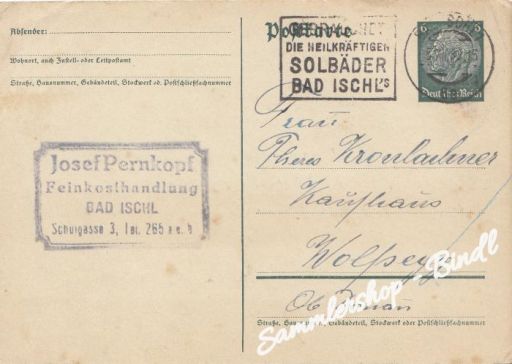 Absender:
Wohnort, auch Zustell- oder Leitpostamt
Straße, Hausnummer, Gebäudeteil, Stockwerk od. Postschließfachnummer
Josef Pernkopf
Feinkosthandlung
BAD ISCHL
Schulgasse 3, Tel. 265
Postkarte
DIE HEILKRÄFTIGEN
SOLBÄDER
BAD ISCHL'S
6
Deutsches Reich
Frau
Theres Kronlachner
Kaufhaus
Wolfsegg
Ob. Donau
Straße, Hausnummer, Gebäudeteil, Stockwerk oder Postschließfachnummer
Sammlershop - Bindl